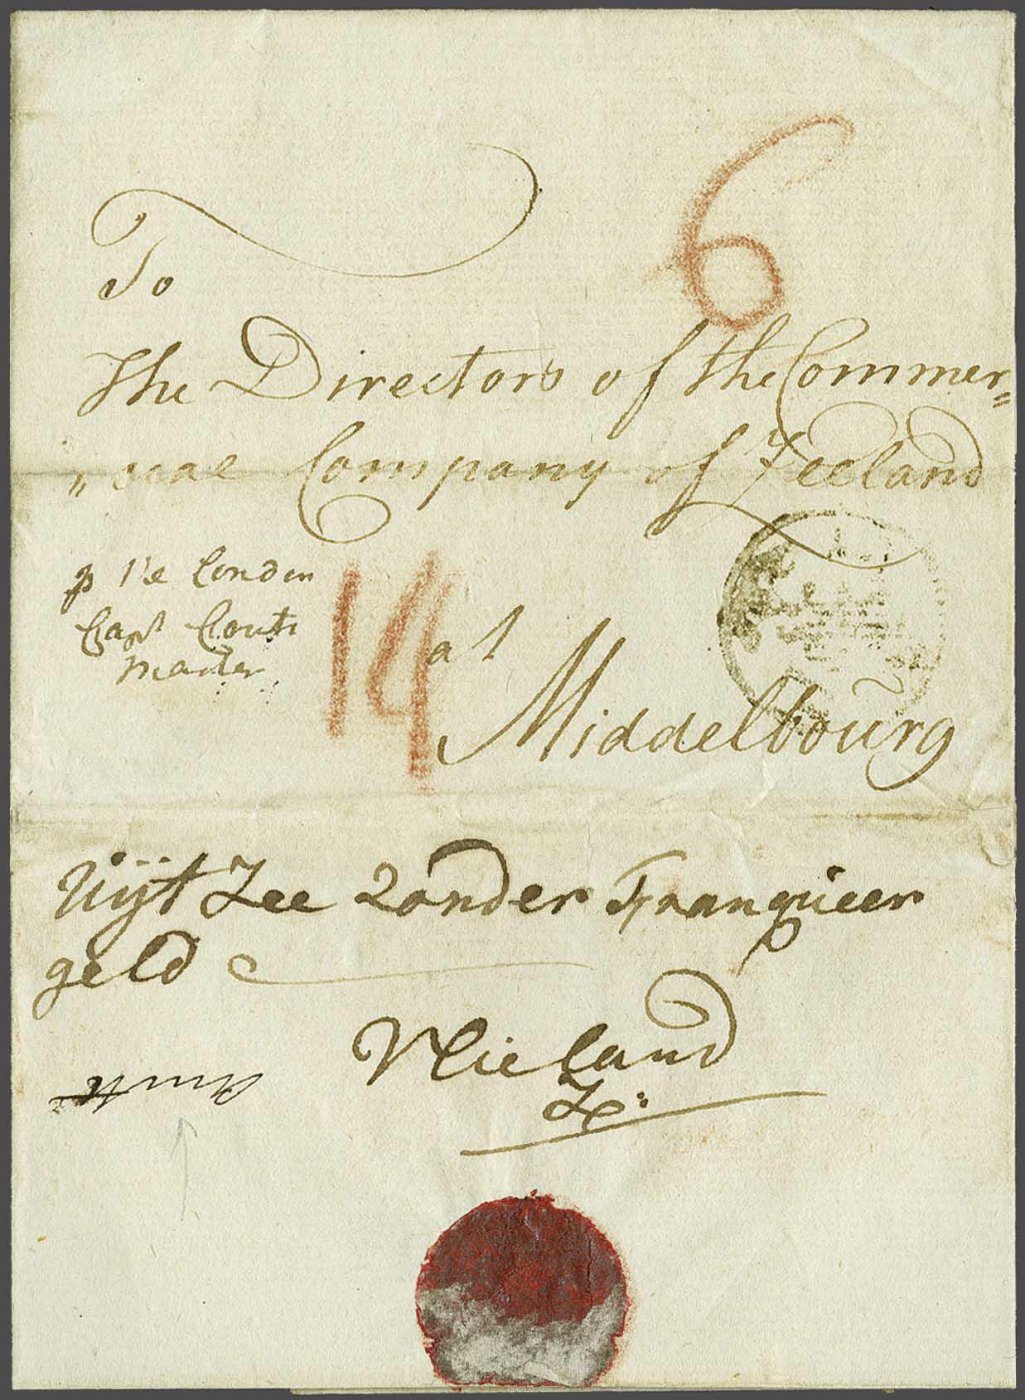 6
To
The Directors of the Commer=
„ cial Company of Zeeland
p r'e London
Capt Couts
Master
14
at
Middelbourg
Uijt Zee zonder Franqueer
geld
Vlieland
Z: